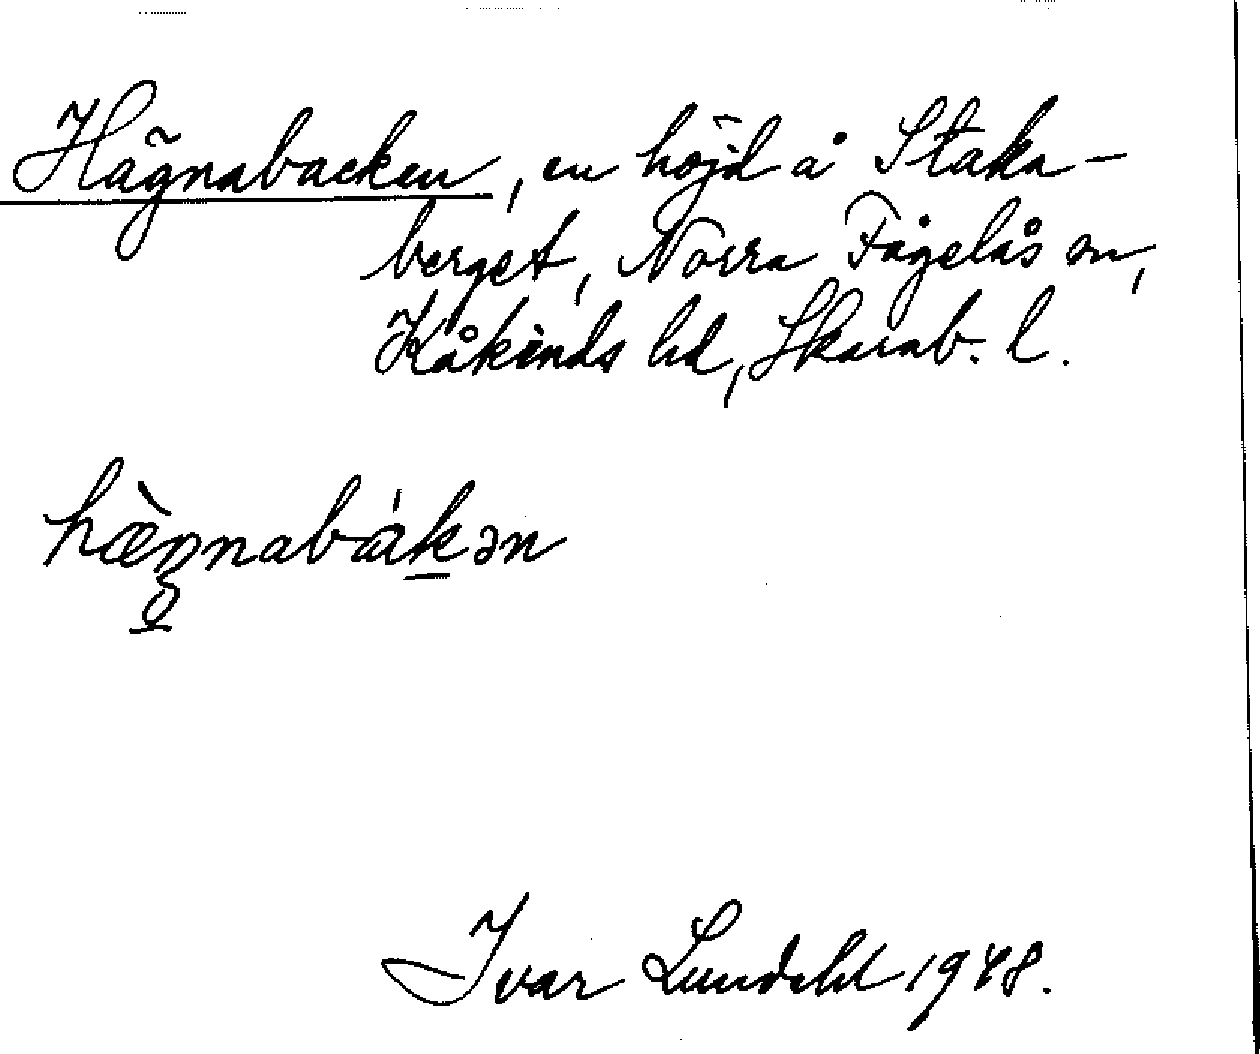 Hägnabacken, en höjd å Staka-
berget, Norra Fågelås sn,
Kåkinds hd, Skarab. l.
hæ̀gnabákən
Ivar Lundahl 1948.